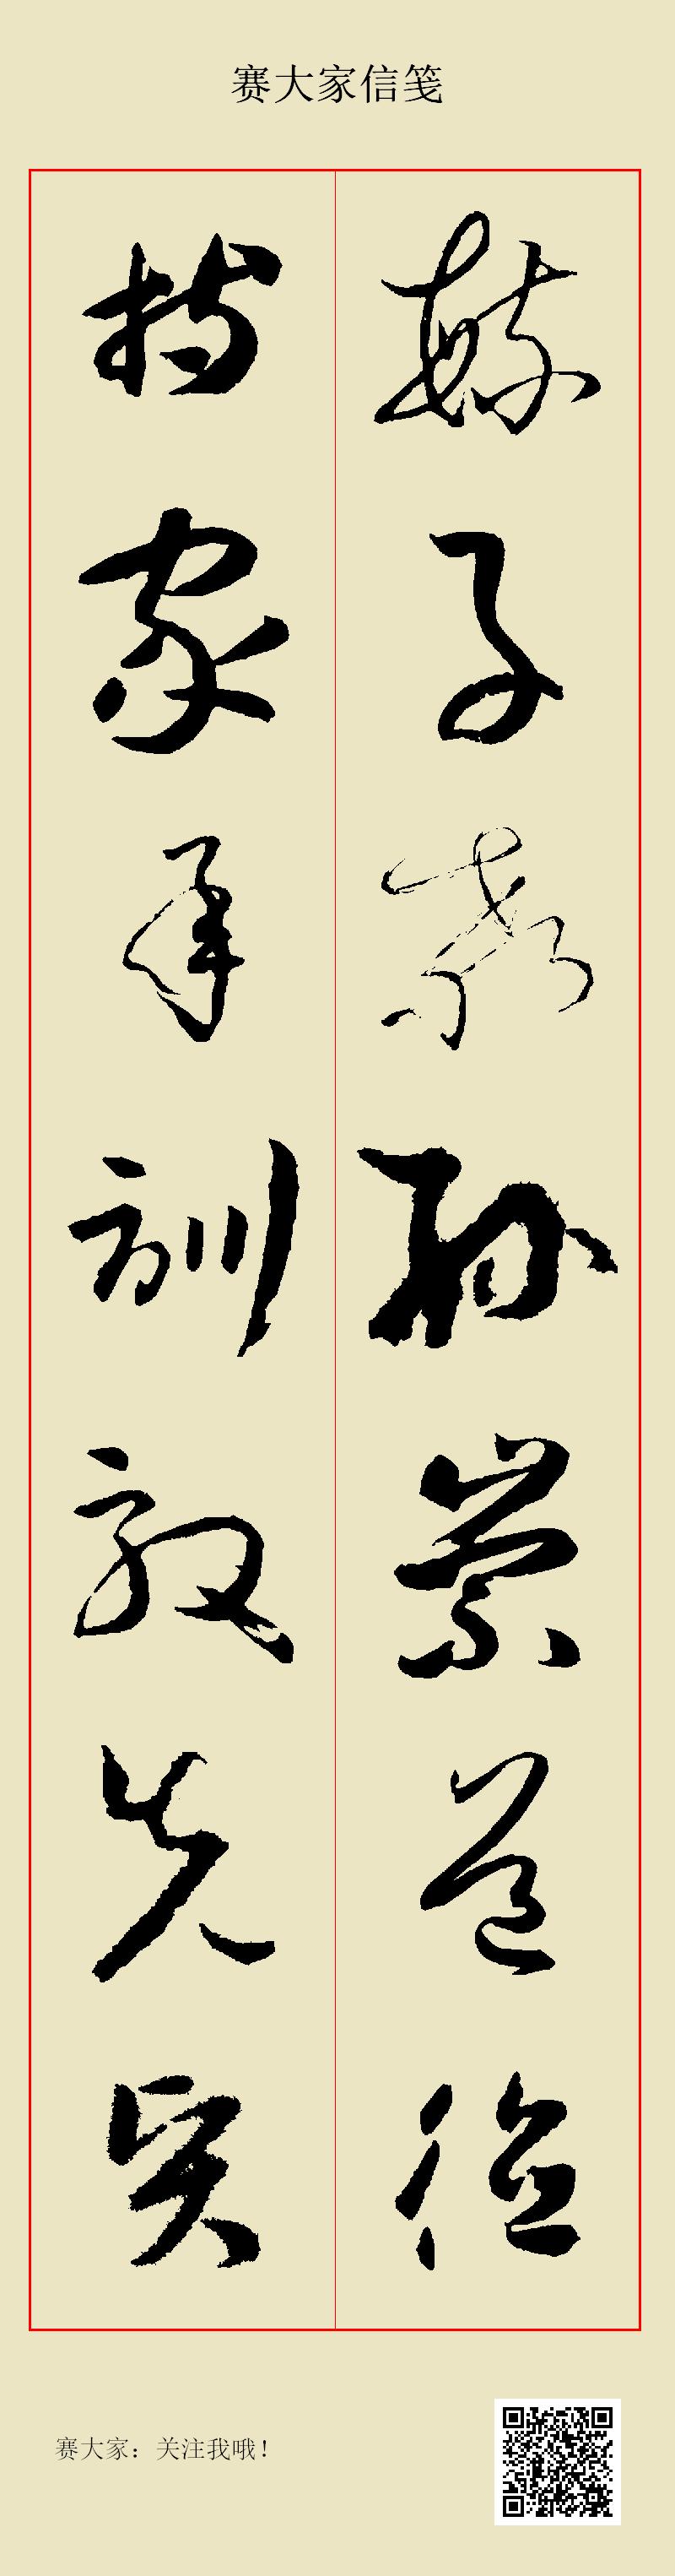 赛大家信笺
毓子教孙崇道德
持家承训效先贤
赛大家：关注我哦！